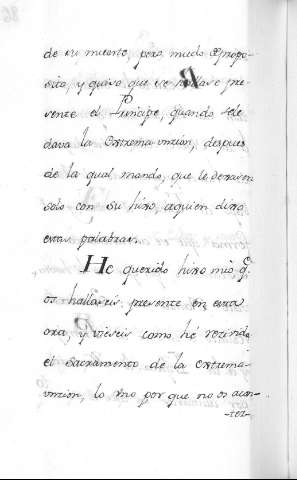 de su muerte, pero mudo proposito
sito, y quiso que se hallase pre-
sente el Principe, quando sele
dava la extrema-uncion, despues
de la qual mandó, que le dexasen
solo con su hixo, aquien dixo
estas palabras.
He querido hixo mio, q.e
os hallaseis presente en esta
ora, y vieseis como hé recivido
el sacramento de la extrema-
uncion, lo uno por que no os acon-
-tez-